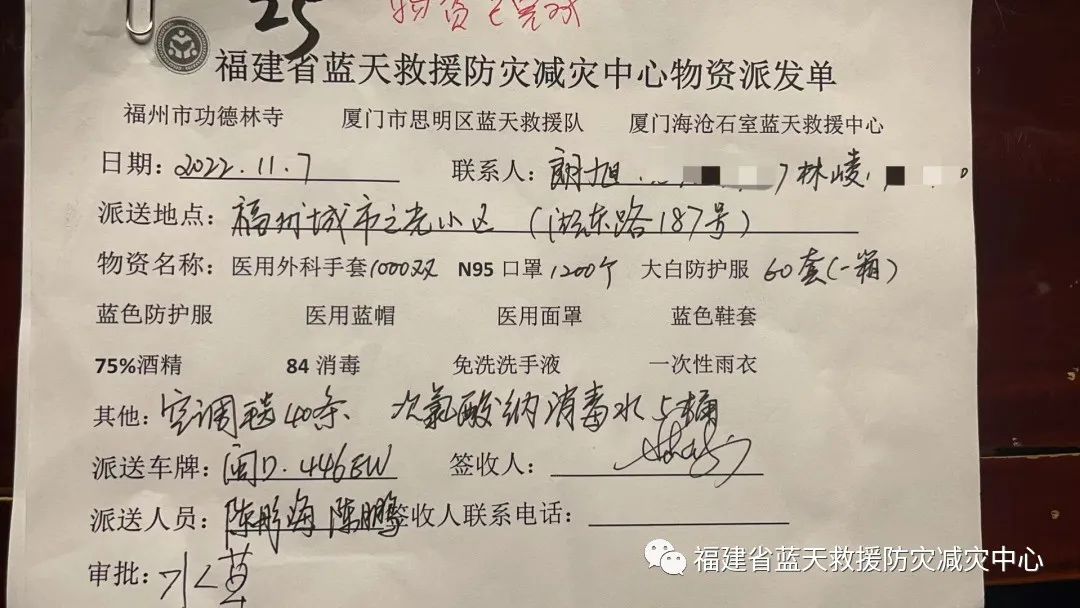 25 物资已完成
福建省蓝天救援防灾减灾中心物资派发单
福州市功德林寺 厦门市思明区蓝天救援队 厦门海沧石室蓝天救援中心
日期：2022.11.7 联系人：朗旭 林崚
派送地点：福州城市之光小区（湖东路187号）
物资名称：医用外科手套1000双 N95 口罩1200个 大白防护服 60套（一箱）
蓝色防护服 医用蓝帽 医用面罩 蓝色鞋套
75%酒精 84 消毒 免洗洗手液 一次性雨衣
其他：空调毯40条 次氯酸纳消毒水5桶
派送车牌：闽D·446EW 签收人：
派送人员：陈彤海 陈鹏 签收人联系电话：
审批：
福建省蓝天救援防灾减灾中心